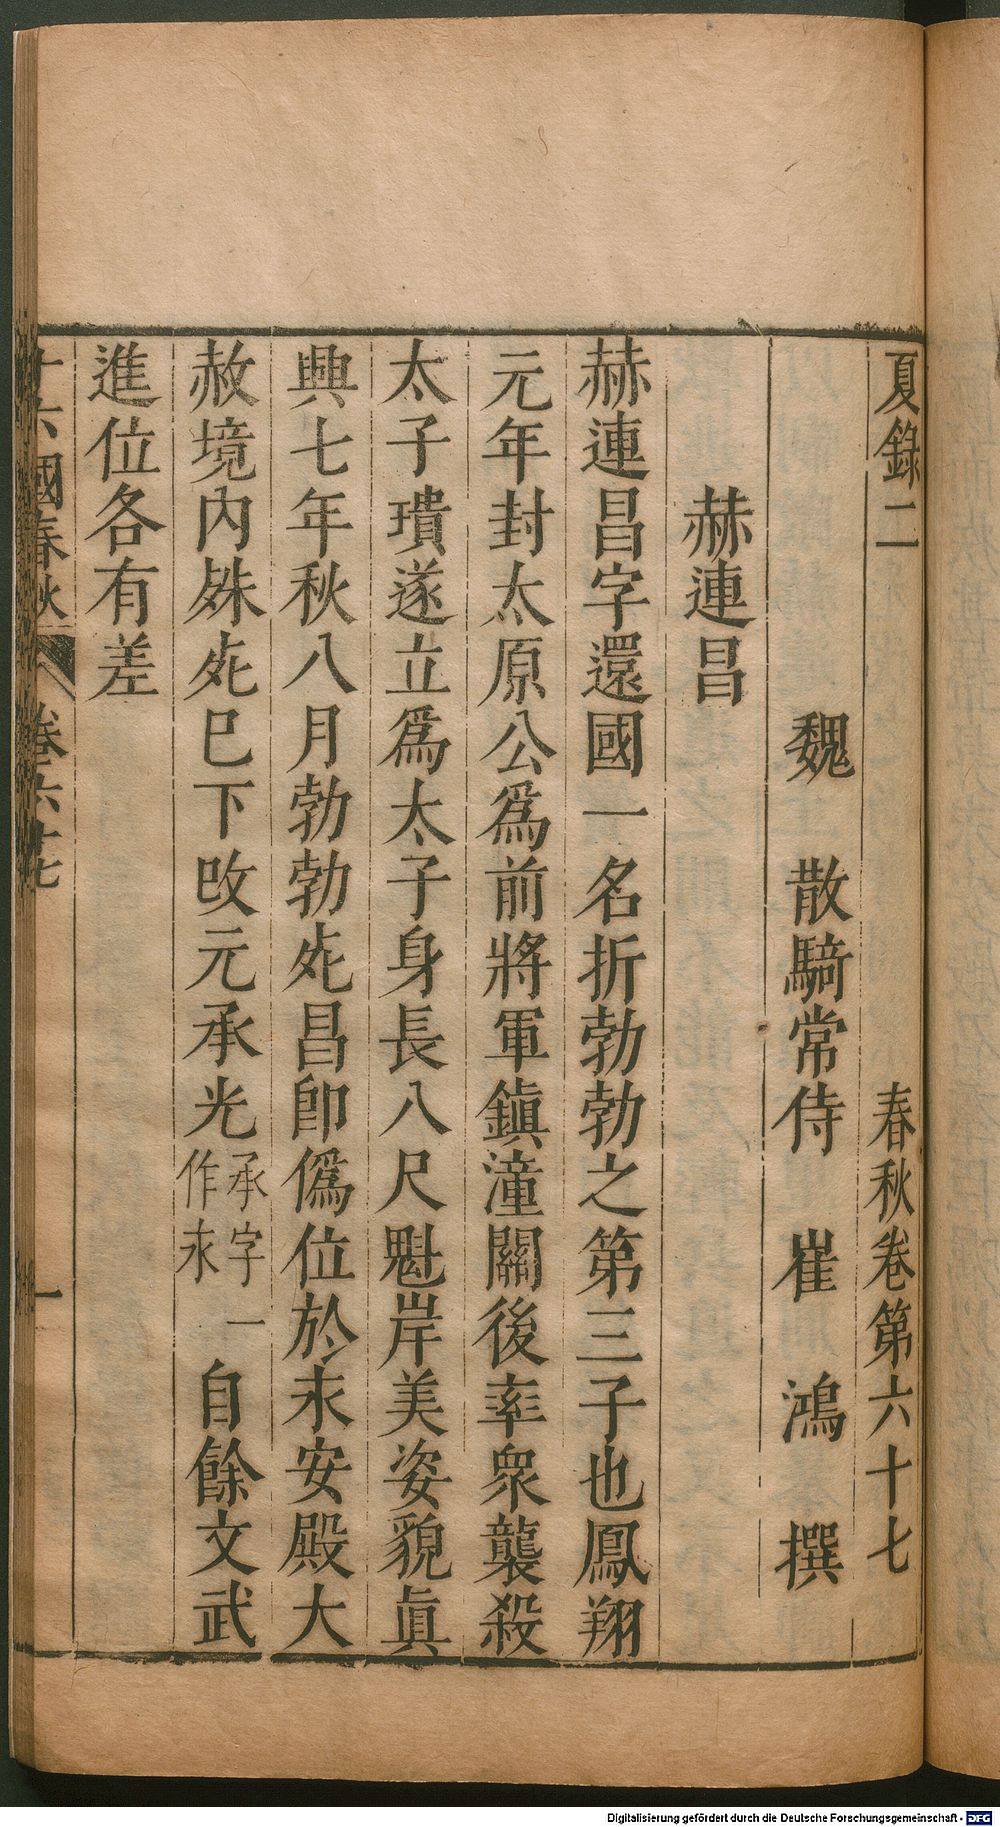 夏錄二　春秋卷第六十七
魏　散騎常侍　崔　鴻　撰
赫連昌
赫連昌字還國一名折勃勃之第三子也鳳翔
元年封太原公爲前將軍鎮潼關後率衆襲殺
太子璝遂立爲太子身長八尺魁岸美姿貌眞
興七年秋八月勃勃死昌卽僞位於永安殿大
赦境內殊死巳下改元承光承字一作永自餘文武
進位各有差
十六國春秋　卷六十七　一
Digitalisierung gefördert durch die Deutsche Forschungsgemeinschaft - DFG